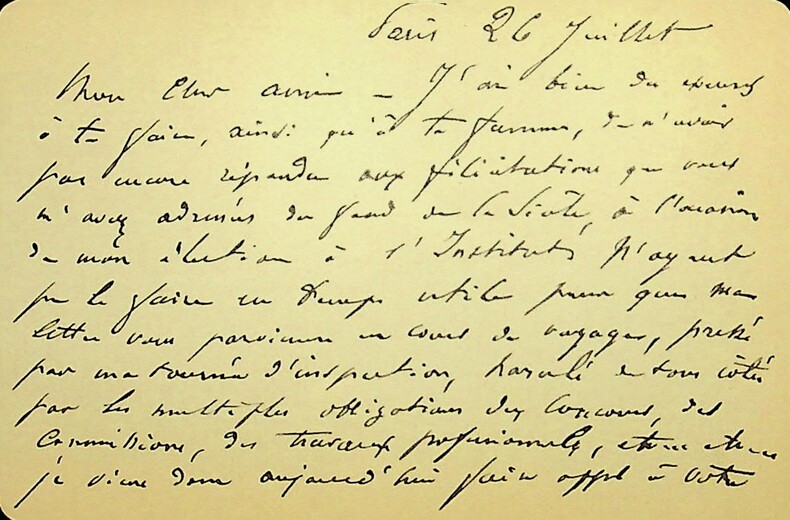 Paris 26 Juillet
Mon cher ami – J'ai bien des excuses
à te faire, ainsi qu'à ta femme, de n'avoir
pas encore répondu aux félicitations que vous
m'avez adressées du fond de la Sicile, à l'occasion
de mon élection à l'Institut. N'ayant
pu le faire en temps utile pour que ma
lettre vous parvienne en cours de voyages, pressé
par ma tournée d'inspection, harcelé de tous côtés
par les multiples obligations des concours, des
Commissions, des travaux professionnels, etc
je viens donc aujourd'hui faire appel à votre